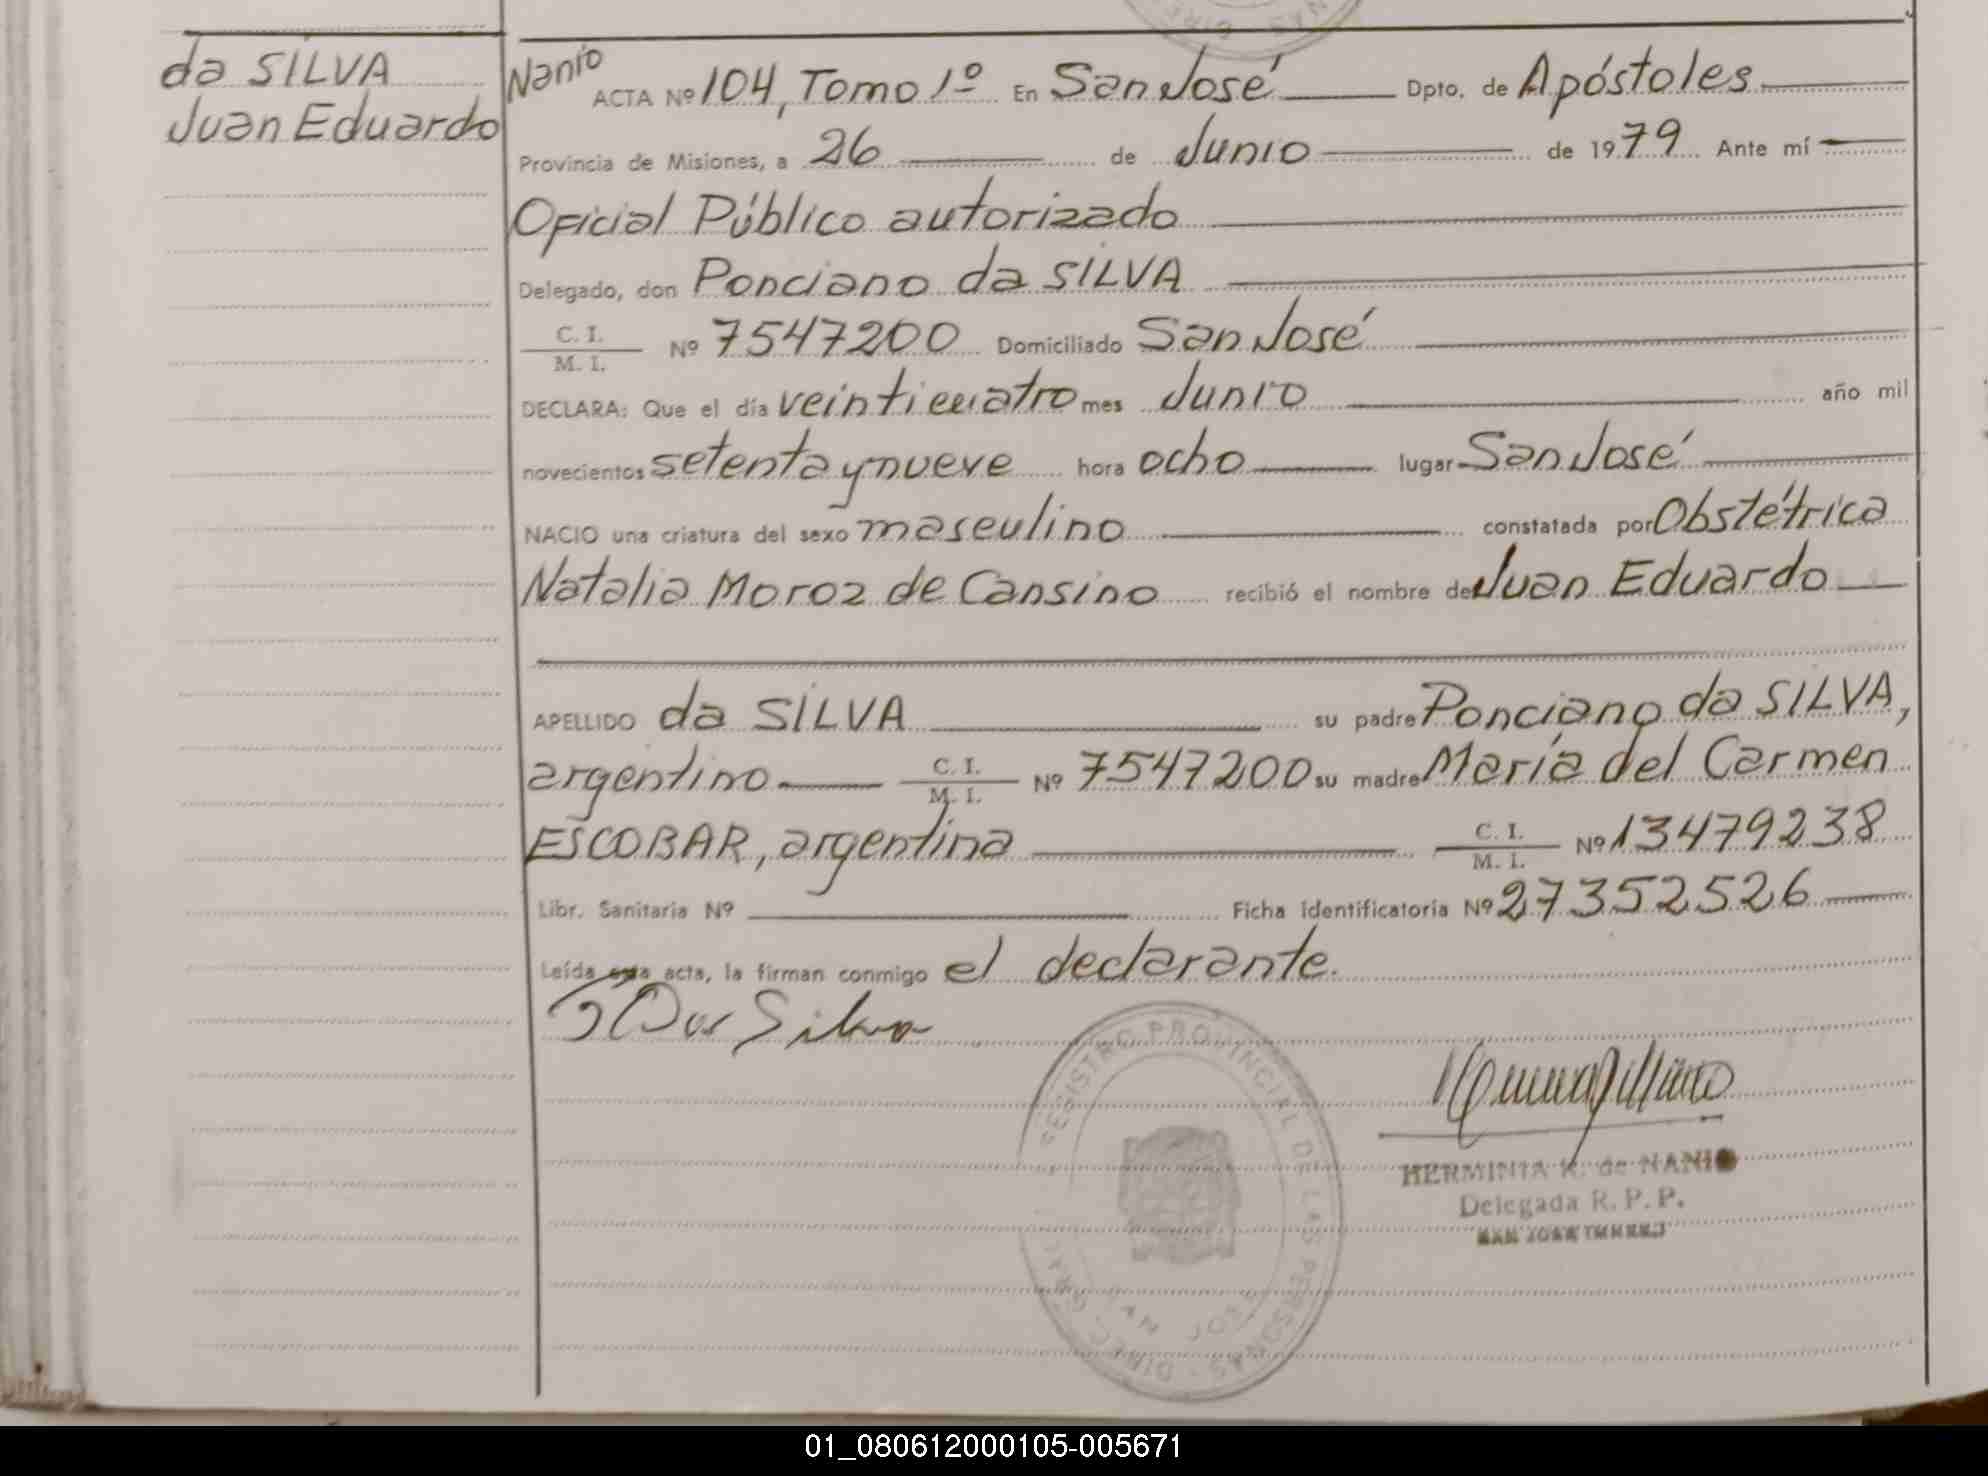 da SILVA
Juan Eduardo
Nanio
ACTA Nº 104, Tomo 1º En San José Dpto. de Apóstoles
Provincia de Misiones, a 26 de Junio de 1979 Ante mí
Oficial Público autorizado
Delegado, don Ponciano da SILVA
C. I.
M. I.
Nº 7547200 Domiciliado San José
DECLARA: Que el día veinticuatro mes Junio año mil
novecientos setenta y nueve hora ocho lugar San José
NACIO una criatura del sexo masculino constatada por Obstétrica
Natalia Moroz de Cansino recibió el nombre de Juan Eduardo
APELLIDO da SILVA su padre Ponciano da SILVA,
argentino C. I. M. I. Nº 7547200 su madre María del Carmen
ESCOBAR, argentina C. I. M. I. Nº 13479238
Libr. Sanitaria Nº Ficha Identificatoria Nº 27352526
Leída esta acta, la firman conmigo el declarante.
Silva
REGISTRO PROVINCIAL DE LAS PERSONAS - DIREC. GRAL.
SAN JOSE
HERMINIA K. de NANIO
Delegada R. P. P.
SAN JOSE
01_080612000105-005671